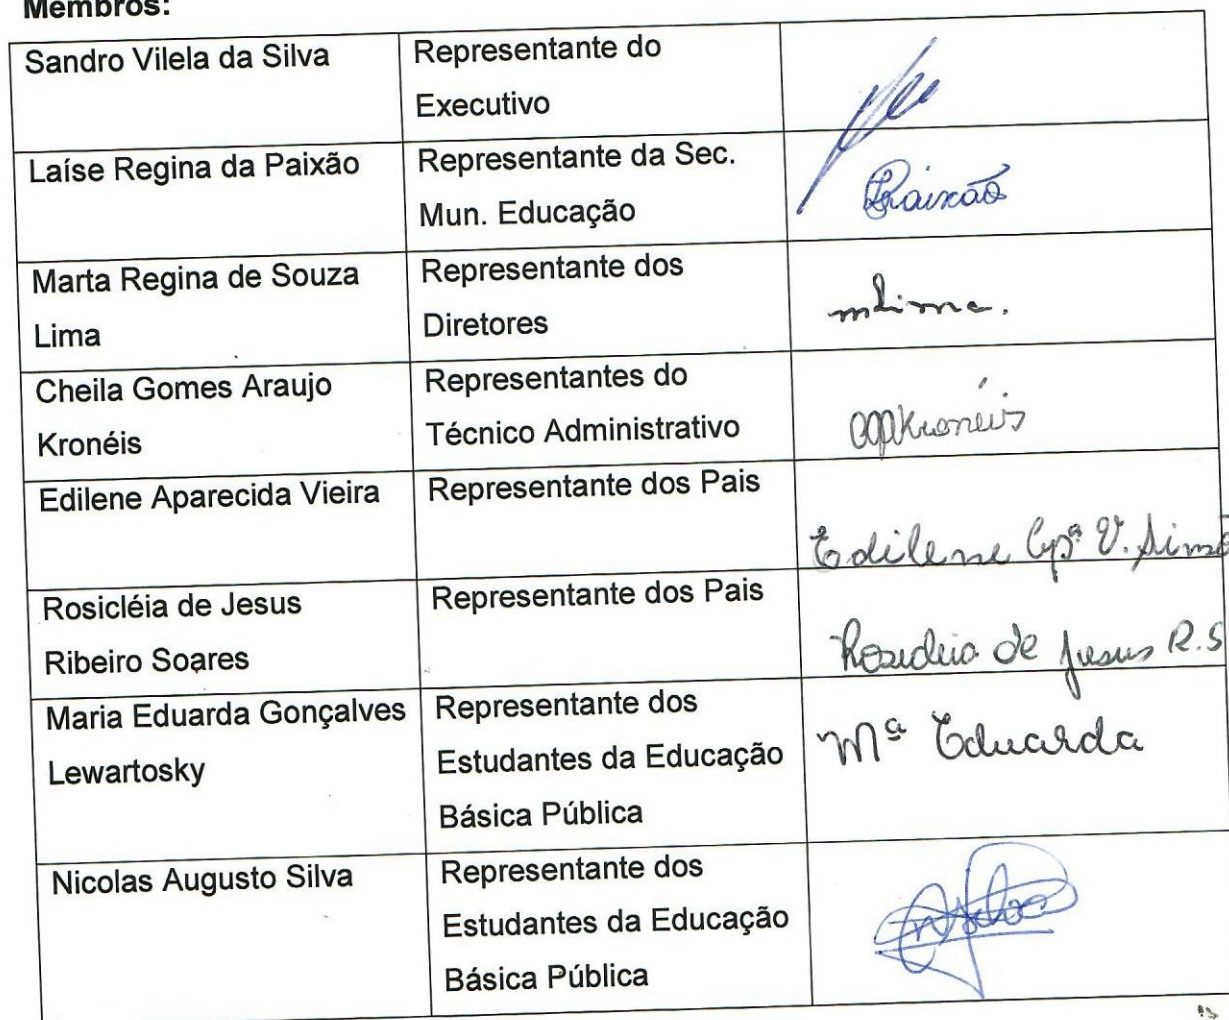 Membros:
Sandro Vilela da Silva
Representante do
Executivo
Laíse Regina da Paixão
Representante da Sec.
Mun. Educação
Paixão
Marta Regina de Souza
Lima
Representante dos
Diretores
mLima.
Cheila Gomes Araujo
Kronéis
Representantes do
Técnico Administrativo
Kronéis
Edilene Aparecida Vieira
Representante dos Pais
Edilene Apª V. Simõ
Rosicléia de Jesus
Ribeiro Soares
Representante dos Pais
Rosicleia de Jesus R.S
Maria Eduarda Gonçalves
Lewartosky
Representante dos
Estudantes da Educação
Básica Pública
Mª Eduarda
Nicolas Augusto Silva
Representante dos
Estudantes da Educação
Básica Pública